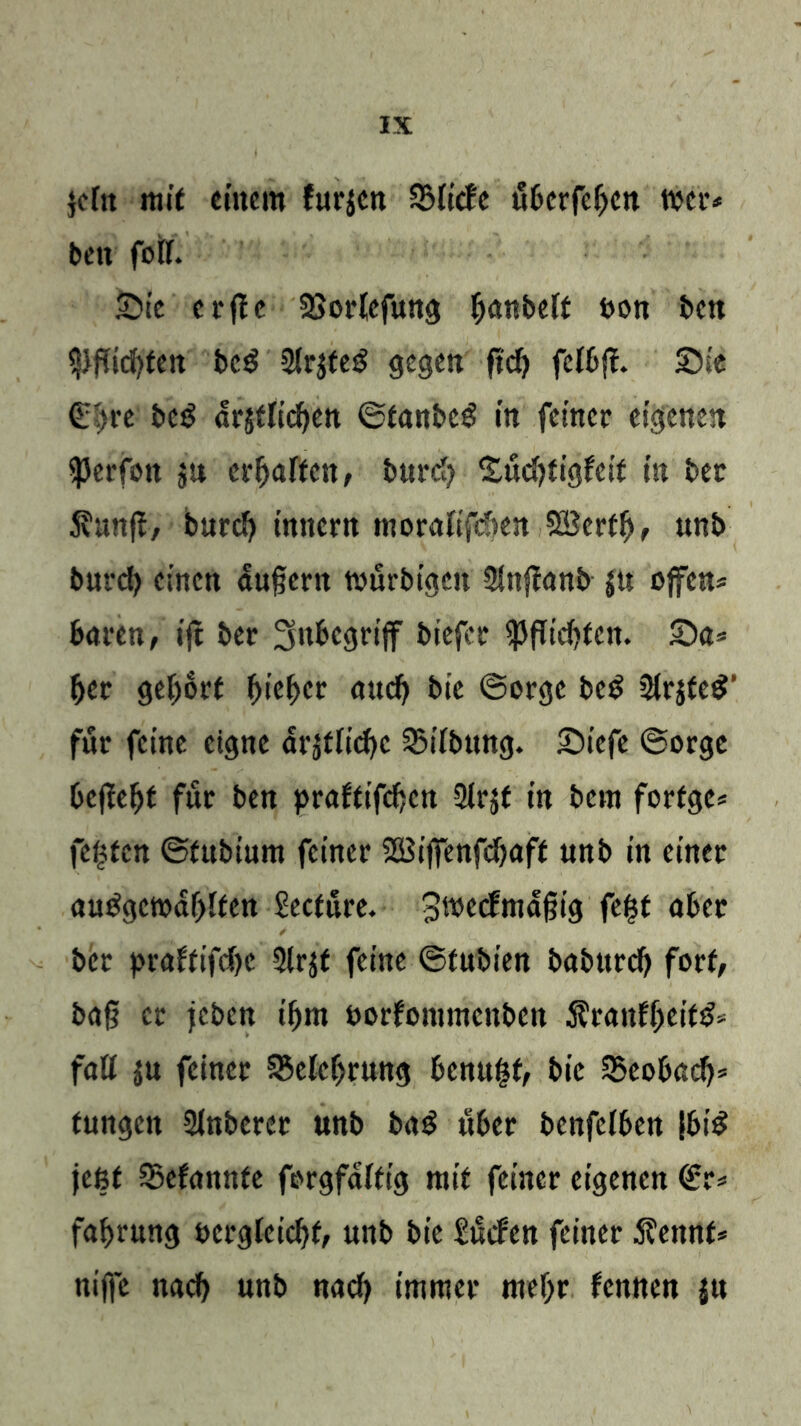 IX
zeln mit einem kurzen Blicke übersehen wer-
den soll.
Die erste Vorlesung handelt von den
Pflichten des Arztes gegen sich selbst. Die
Ehre des ärztlichen Standes in seiner eigenen
Person zu erhalten, durch Tüchtigkeit in der
Kunst, durch innern moralischen Werth, und
durch einen äußern würdigen Anstand zu offen-
baren, ist der Inbegriff dieser Pflichten. Da-
her gehört hieher auch die Sorge des Arztes
für seine eigne ärztliche Bildung. Diese Sorge
besteht für den praktischen Arzt in dem fortge-
setzten Studium seiner Wissenschaft und in einer
ausgewählten Lectüre. Zweckmäßig setzt aber
der praktische Arzt seine Studien dadurch fort,
daß er jeden ihm vorkommenden Krankheits-
fall zu seiner Belehrung benutzt, die Beobach-
tungen Anderer und das über denselben bis
jetzt Bekannte sorgfältig mit seiner eigenen Er-
fahrung vergleicht, und die Lücken seiner Kennt-
nisse nach und nach immer mehr kennen zu